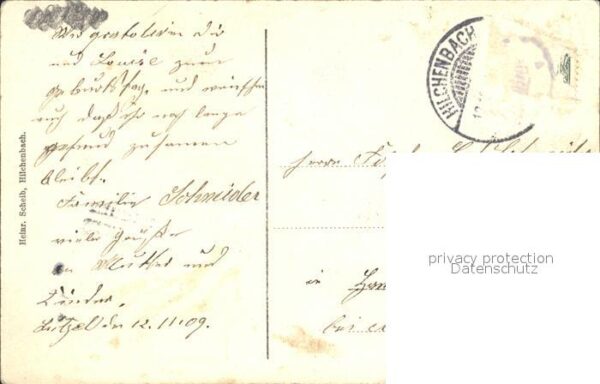 Wir gratulieren dir
und Louise zum
Geburtstag, und wünschen
euch daß ihr noch lange
gesund zusamen
bleibt.
Familie Schneider
viele Grüße
an Mutter und
Kinder.
Lützel den 12.11.09.
Heinr. Scheib, Hilchenbach.
HILCHENBACH
Herrn
in
bei
privacy protection
Datenschutz